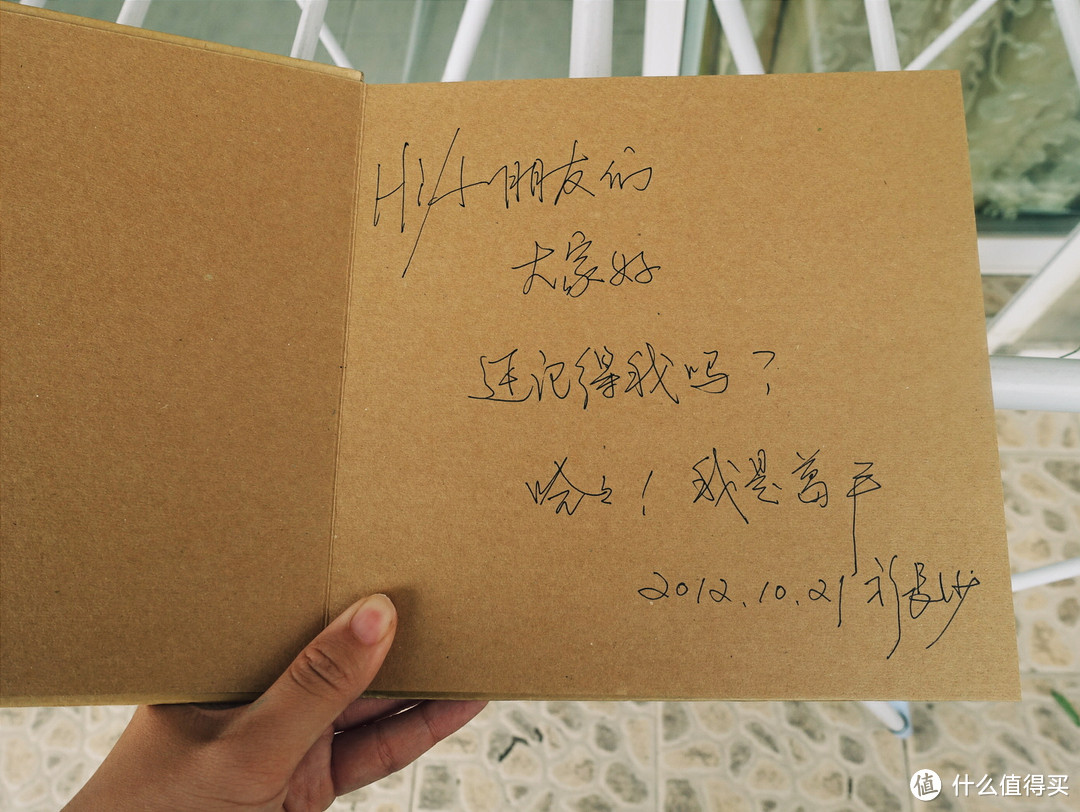 Hi/小朋友们
大家好
还记得我吗?
哈哈!我是葛平
2012.10.21 于长沙
值 什么值得买